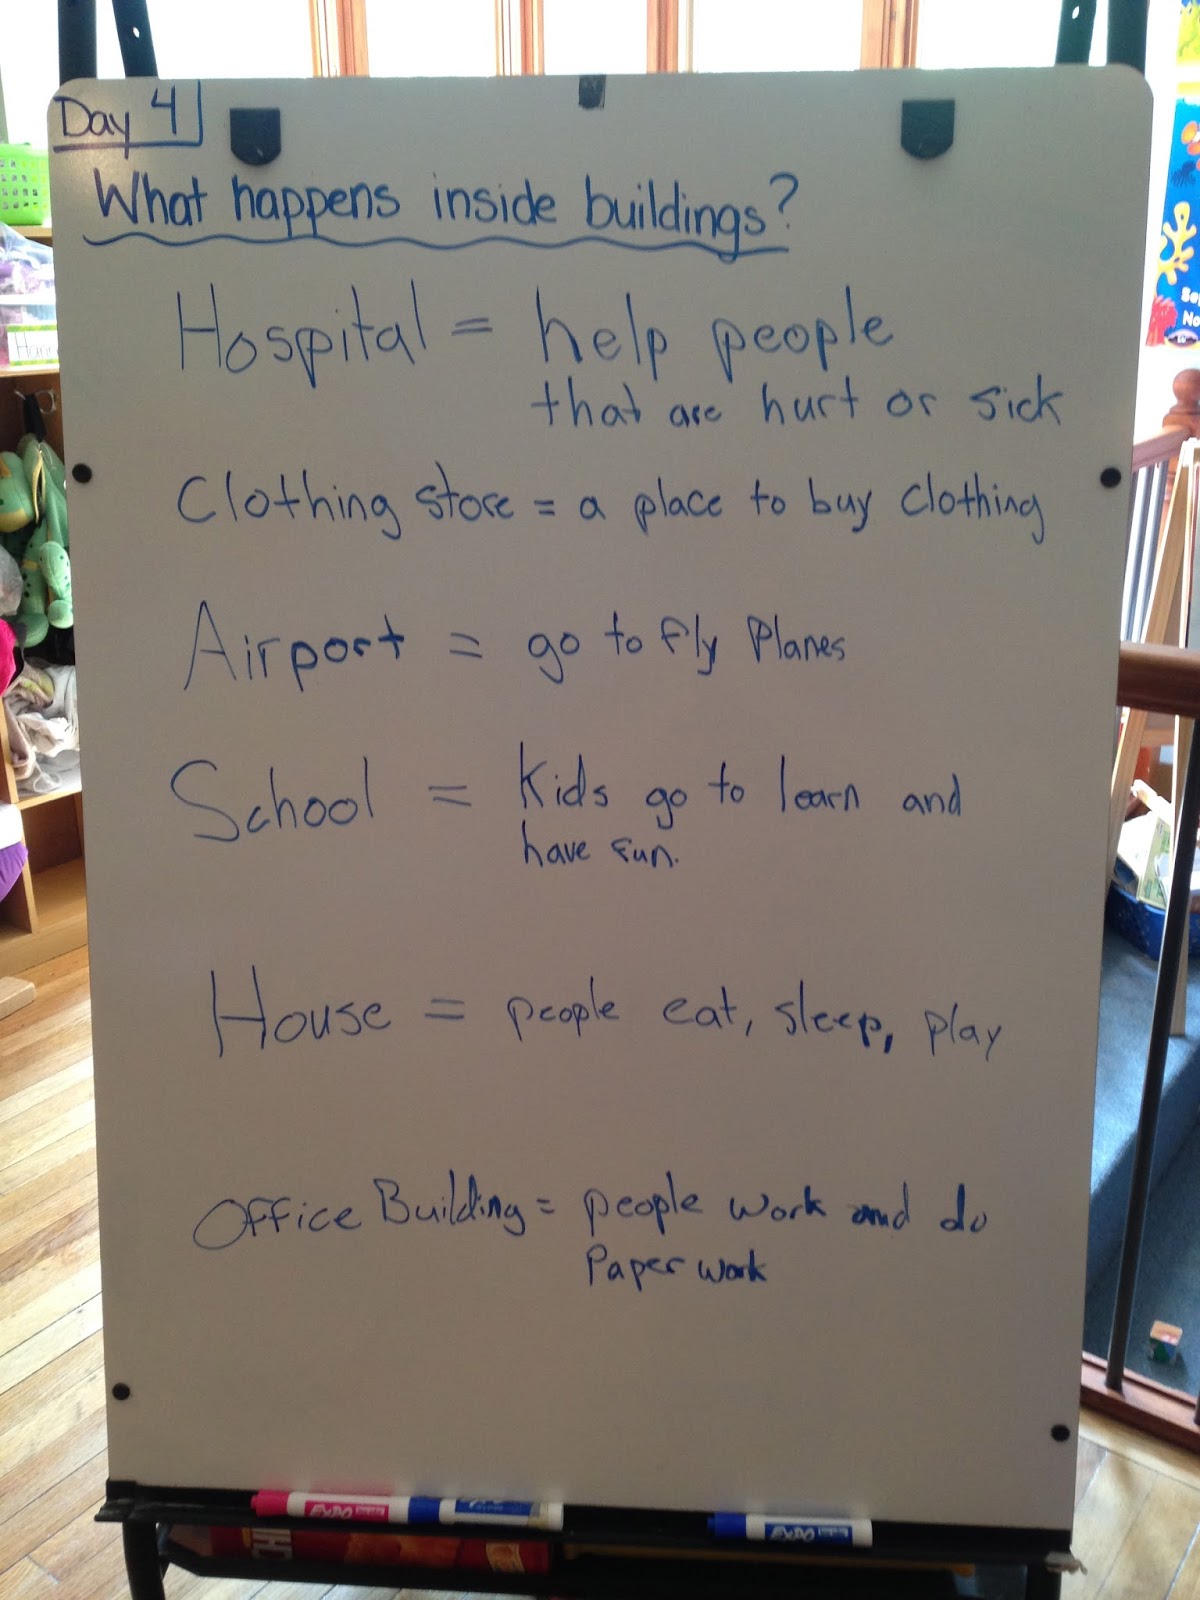 Day 4
What happens inside buildings?
Hospital = help people
that are hurt or sick
Clothing store = a place to buy clothing
Airport = go to fly Planes
School = Kids go to learn and
have fun.
House = people eat, sleep, play
Office Building = people work and do
Paper work
EXPO
EXPO